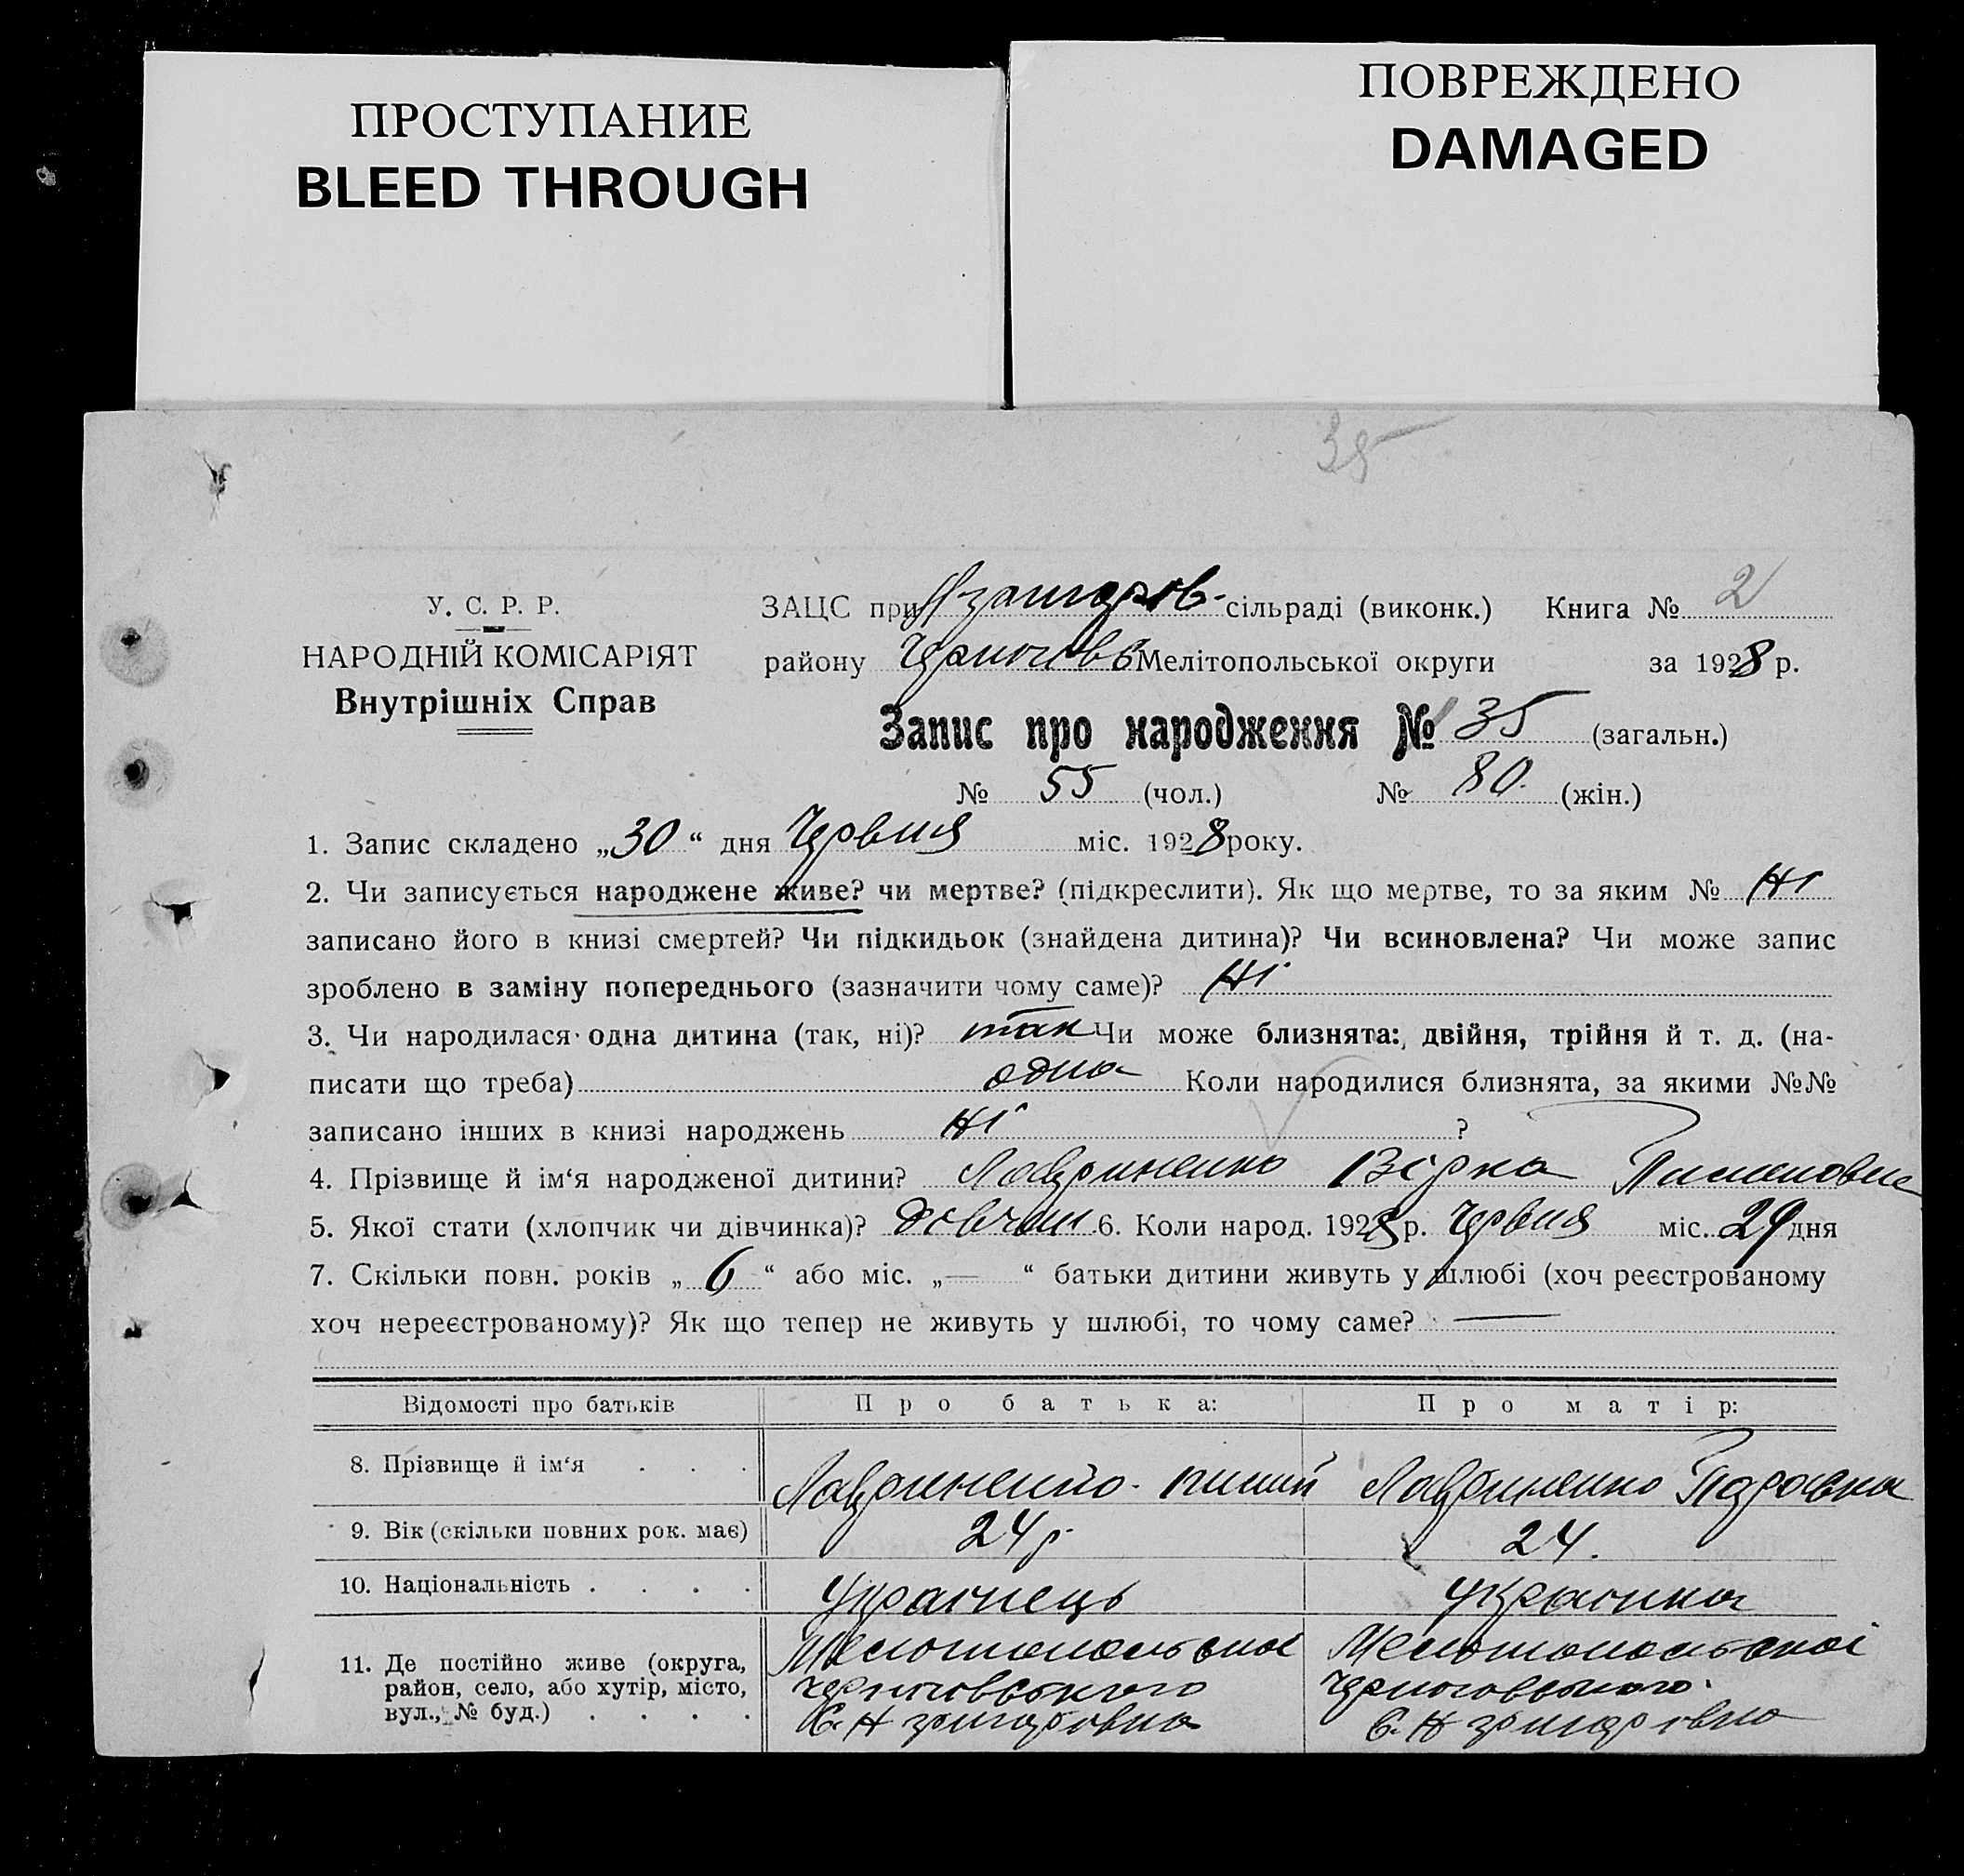 ПРОСТУПАНИЕ
BLEED THROUGH
ПОВРЕЖДЕНО
DAMAGED
35
У. С. Р. Р.
НАРОДНІЙ КОМІСАРІЯТ
Внутрішніх Справ
ЗАЦС при сільраді (виконк.) Книга № 2
району Мелітопольської округи за 1928 р.
Запис про народження № 35 (загальн.)
№ 55 (чол.) № 80. (жін.)
1. Запис складено „30“ дня Червня міс. 1928 року.
2. Чи записується народжене живе? чи мертве? (підкреслити). Як що мертве, то за яким № Ні
записано його в книзі смертей? Чи підкидьок (знайдена дитина)? Чи всиновлена? Чи може запис
зроблено в заміну попереднього (зазначити чому саме)? Ні
3. Чи народилася одна дитина (так, ні)? так Чи може близнята: двійня, трійня й т. д. (на-
писати що треба) одна Коли народилися близнята, за якими №№
записано інших в книзі народжень ні ?
4. Прізвище й ім‘я народженої дитини? Лавриненко Вірка Пименовна
5. Якої стати (хлопчик чи дівчинка)? дівчин 6. Коли народ. 1928 р. Червня міс. 29 дня
7. Скільки повн. років „6“ або міс. „—“ батьки дитини живуть у шлюбі (хоч реєстрованому
хоч нереєстрованому)? Як що тепер не живуть у шлюбі, то чому саме? —
Відомості про батьків Про батька: Про матір:
8. Прізвище й ім‘я . . . Лавриненко Лавриненко
9. Вік (скільки повних рок. має) 24 р. 24.
10. Національність . . . . Українець Українка
11. Де постійно живе (округа, Мелітопольської Мелітопольської
район, село, або хутір, місто, Черниговського Черниговського
вул., № буд.) . . . .